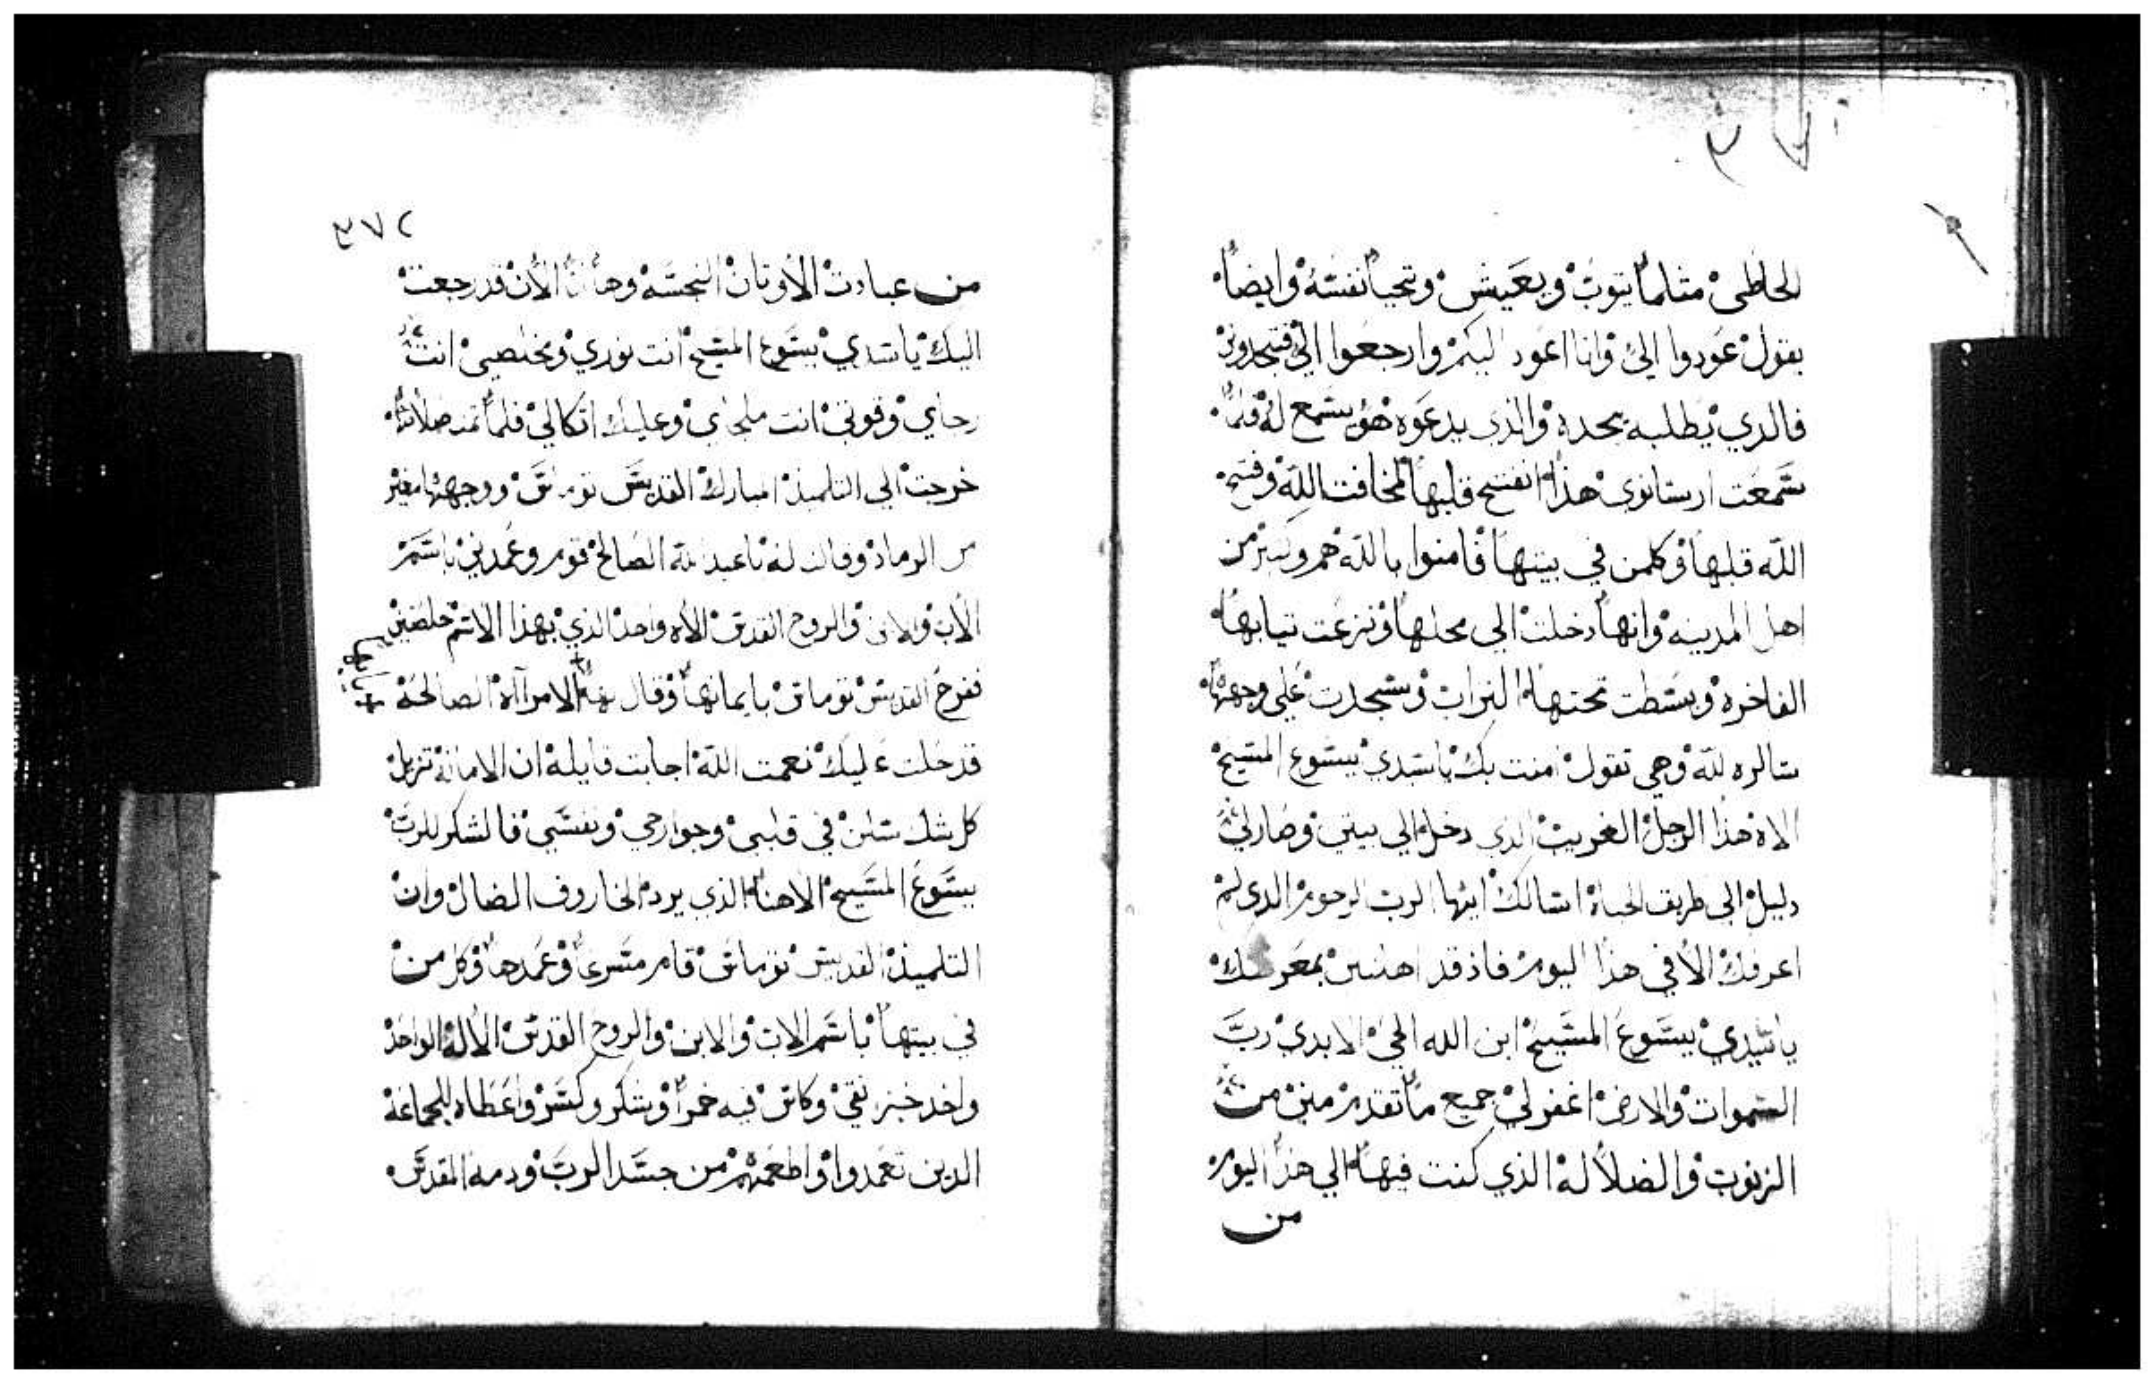 الخاطى مثلما يتوب ويعيش وتحيا نفسه وايضا
يقول عودوا الي وانا اعود اليكم وارجعوا الي فتجدون
فالدي يطلبه يجده والذي يدعوه هو يسمع له فلما
سمعت ارسانوي هذا انفتح قلبها لمخافت الله وفتح
الله قلبها وكلمن في بيتها فامنوا بالله هم وكثير من
اهل المدينه وانها دخلت الي محلها ونزعت تيابها
الفاخره وبسطت تحتها التراب وسجدت علي وجهها
سالره لله وهي تقول امنت بك ياسيدي يسوع المسيح
الاه هذا الرجل الغريب الذي دخل الي بيتي وصار لي
دليل الي طريق الحياة اسالك ايها الرب الرحوم الدي لم
اعرفك الا في هذا اليوم فاذ قد بمعرفتك
ياسيدي يسوع المسيح ابن الله الحي الابدي رب
السموات والارض اغفر لي جميع ما تقدم مني من
الزنوب والضلاله الذي كنت فيها الي هذا اليوم
من
٣٧٢
من عبادت الاوتان النجسه وهانا الان قد رجعت
اليك ياسيدي يسوع المسيح انت نوري ومخلصي انت
رجاي وقوتي انت ملجاي وعليك اتكالي فلما تمت صلاتها
خرجت الي التلميذ المبارك القديس توماس ووجهها مغبر
من الرماد وقالت له ياعبد الله الصالح قوم وعمدني باسم
الاب والابن والروح القدس الاه واحد الذي بهذا الاسم خلصني
ففرح القديس توماس بايمانها وقال لها ايتها الامرآاة الصالحة
قد حلت عليك نعمت الله اجابت قايلة ان الامانة تزيل
كل شك سكن في قلبي وجوارحي ونفسي فالشكر للرب
يسوع المسيح الاهنا الذي يرد الخاروف الضال وان
التلميذ القديس توماس قام مسرعا وعمدها وكل من
في بيتها باسم الاب والابن والروح القدس الاله الواحد
واخد خبز نقي وكاس فيه خمرا وشكر وكسر واعطاه للجماعة
الدين تعمدوا واطعمهم من جسد الرب ودمه المقدس